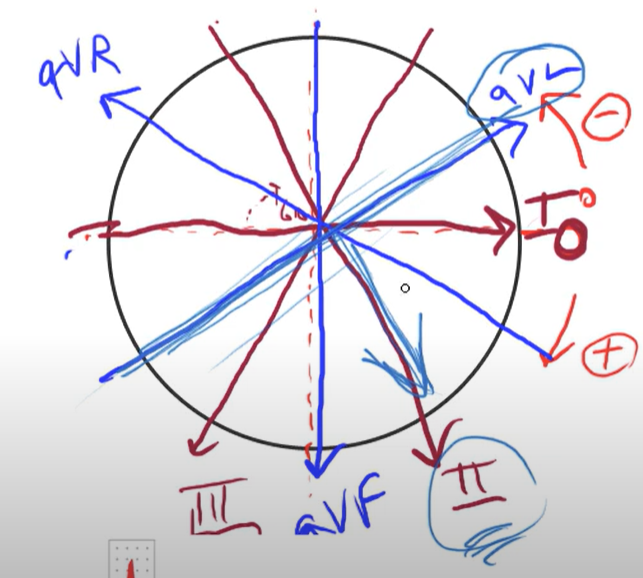 aVR
aVL
−
I 0°
+
III
aVF
II